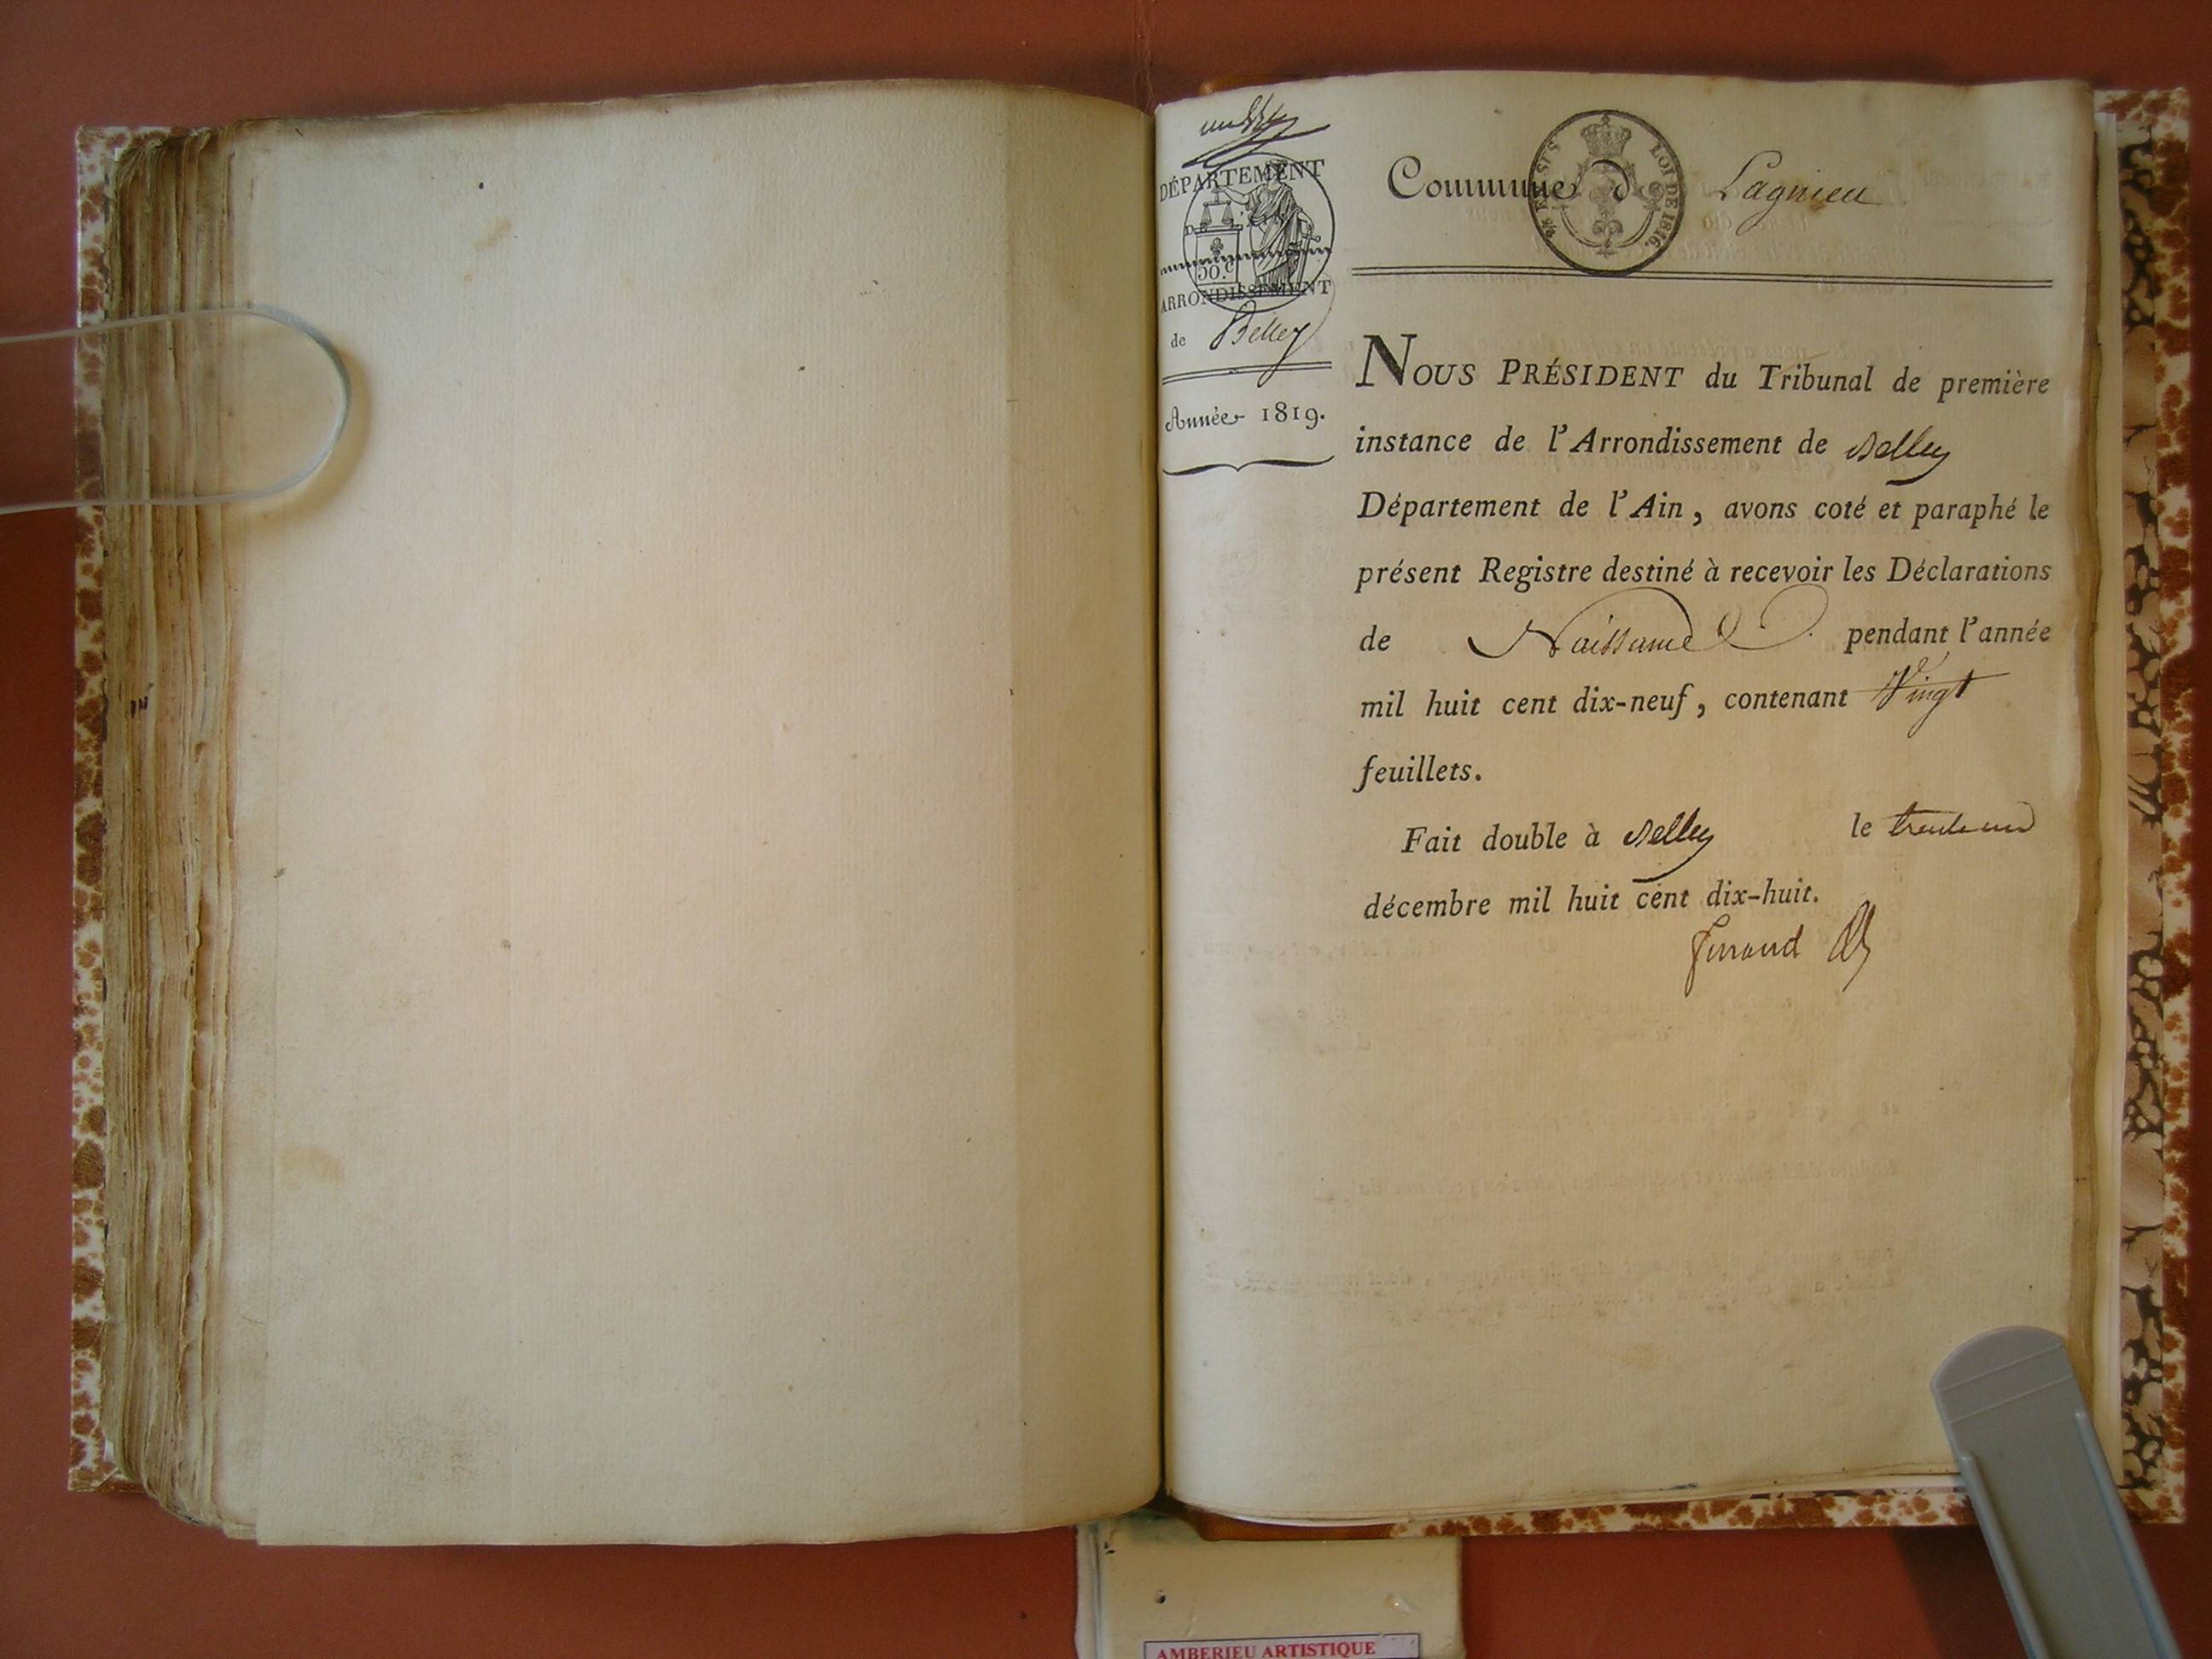 DÉPARTEMENT
50.C
ARRONDISSEMENT
de Belley
Année 1819.
Commune d Lagnieu
LOI DE 1816.
NOUS PRÉSIDENT du Tribunal de première
instance de l'Arrondissement de Belley
Département de l'Ain, avons coté et paraphé le
présent Registre destiné à recevoir les Déclarations
de Naissance pendant l'année
mil huit cent dix-neuf, contenant Vingt
feuillets.
Fait double à Belley le trente un
décembre mil huit cent dix-huit.
AMBERIEU ARTISTIQUE